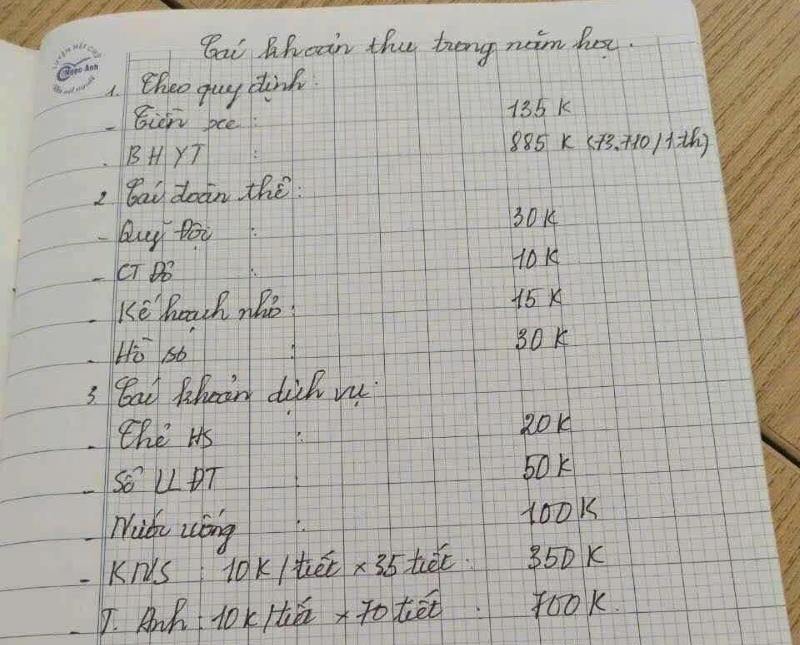 Các khoản thu trong năm học.
1. Theo quy định:
- Tiền xe : 135 K
- BHYT : 885 K (73.710/1th)
2 Các đoàn thể:
- Quỹ Đội : 30K
- CT Đỏ : 10K
- Kế hoạch nhỏ: 15 K
- Hồ sơ : 30 K
3. Các khoản dịch vụ:
- Thẻ HS : 20K
- Sổ LLĐT : 50K
- Nước uống : 100K
- KNS : 10K/tiết x 35 tiết : 350 K
- T. Anh : 10K/tiết x 70 tiết : 700K.
Ngọc Ánh